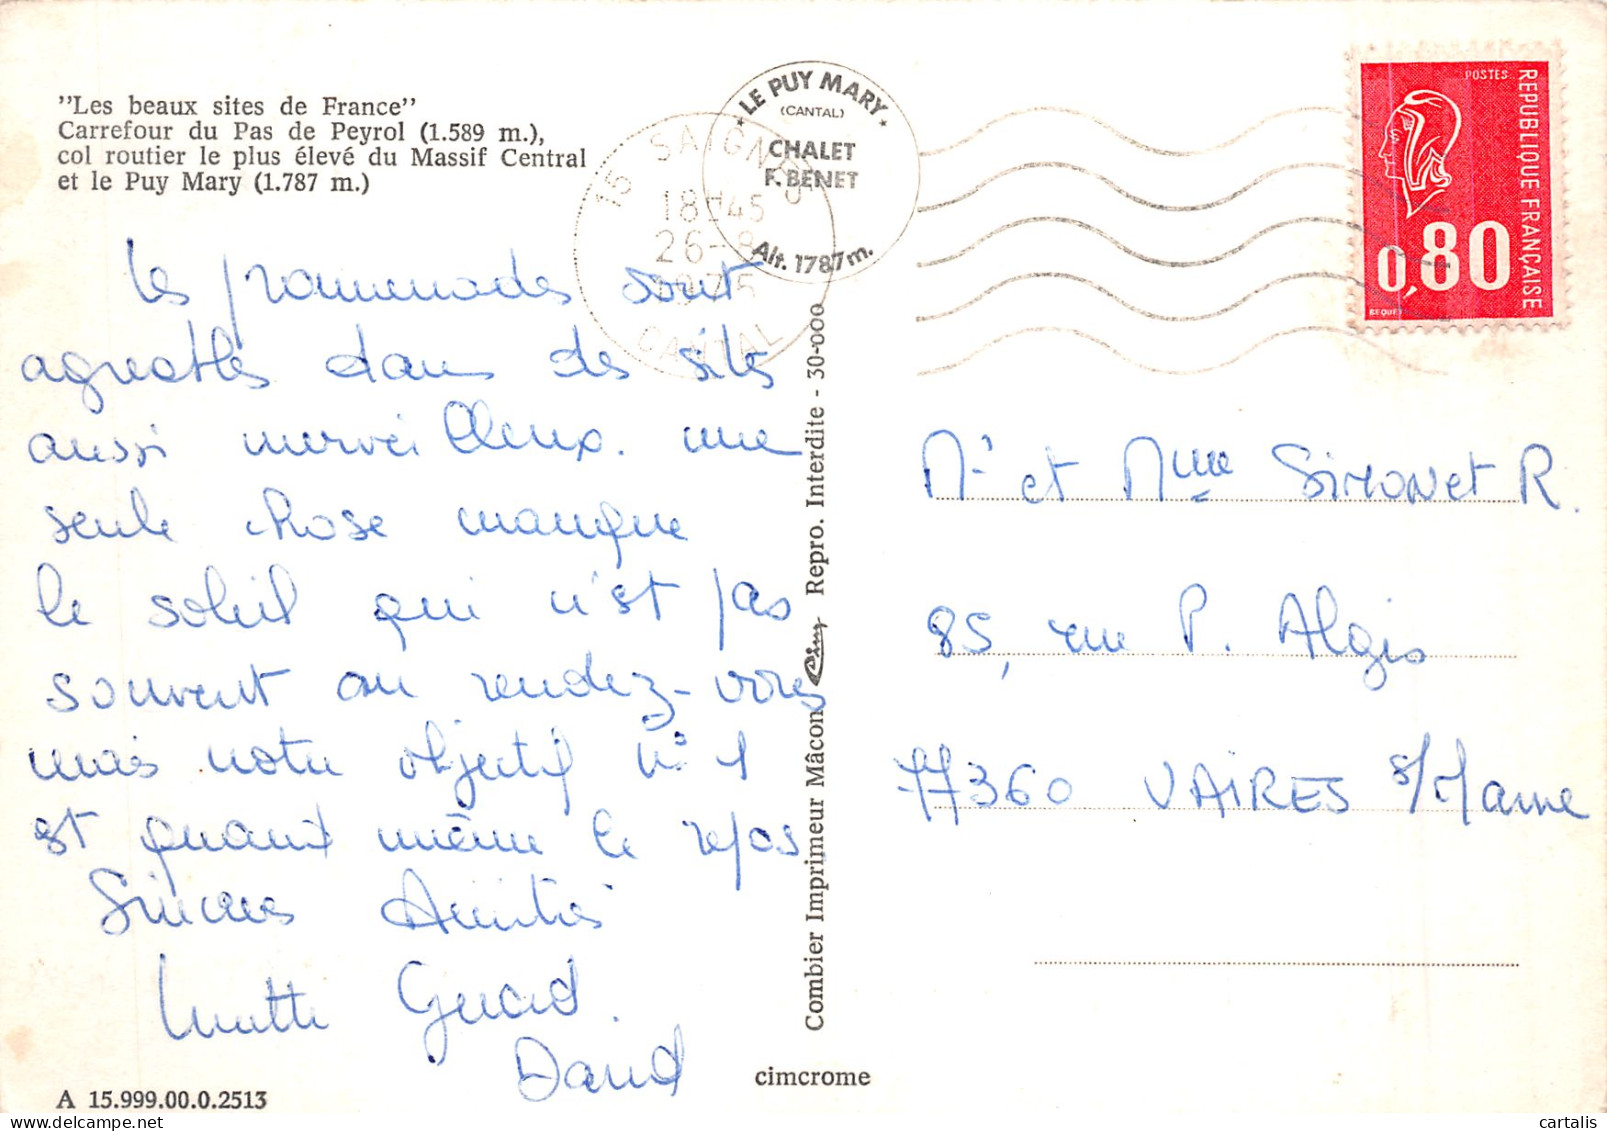 "Les beaux sites de France"
Carrefour du Pas de Peyrol (1.589 m.),
col routier le plus élevé du Massif Central
et le Puy Mary (1.787 m.)
15 SAIGNES
18H45
26-8
1975
CANTAL
★ LE PUY MARY ★
(CANTAL)
CHALET
F. BENET
Alt. 1787m.
POSTES
REPUBLIQUE FRANÇAISE
0,80
BEQUET
Les promenades sont
agréables dans des sites
aussi merveilleux. une
seule chose manque
le soleil qui n'est pas
souvent au rendez-vous
mais notre objectif n° 1
est quand même le repos.
Sincères Amitiés
Gérard
David
Mr et Mme Simonet R.
85, rue P. Algis
77360 VAIRES s/Marne
Combier Imprimeur Mâcon Cim Repro. Interdite - 30-000
cimcrome
A 15.999.00.0.2513
cartalis